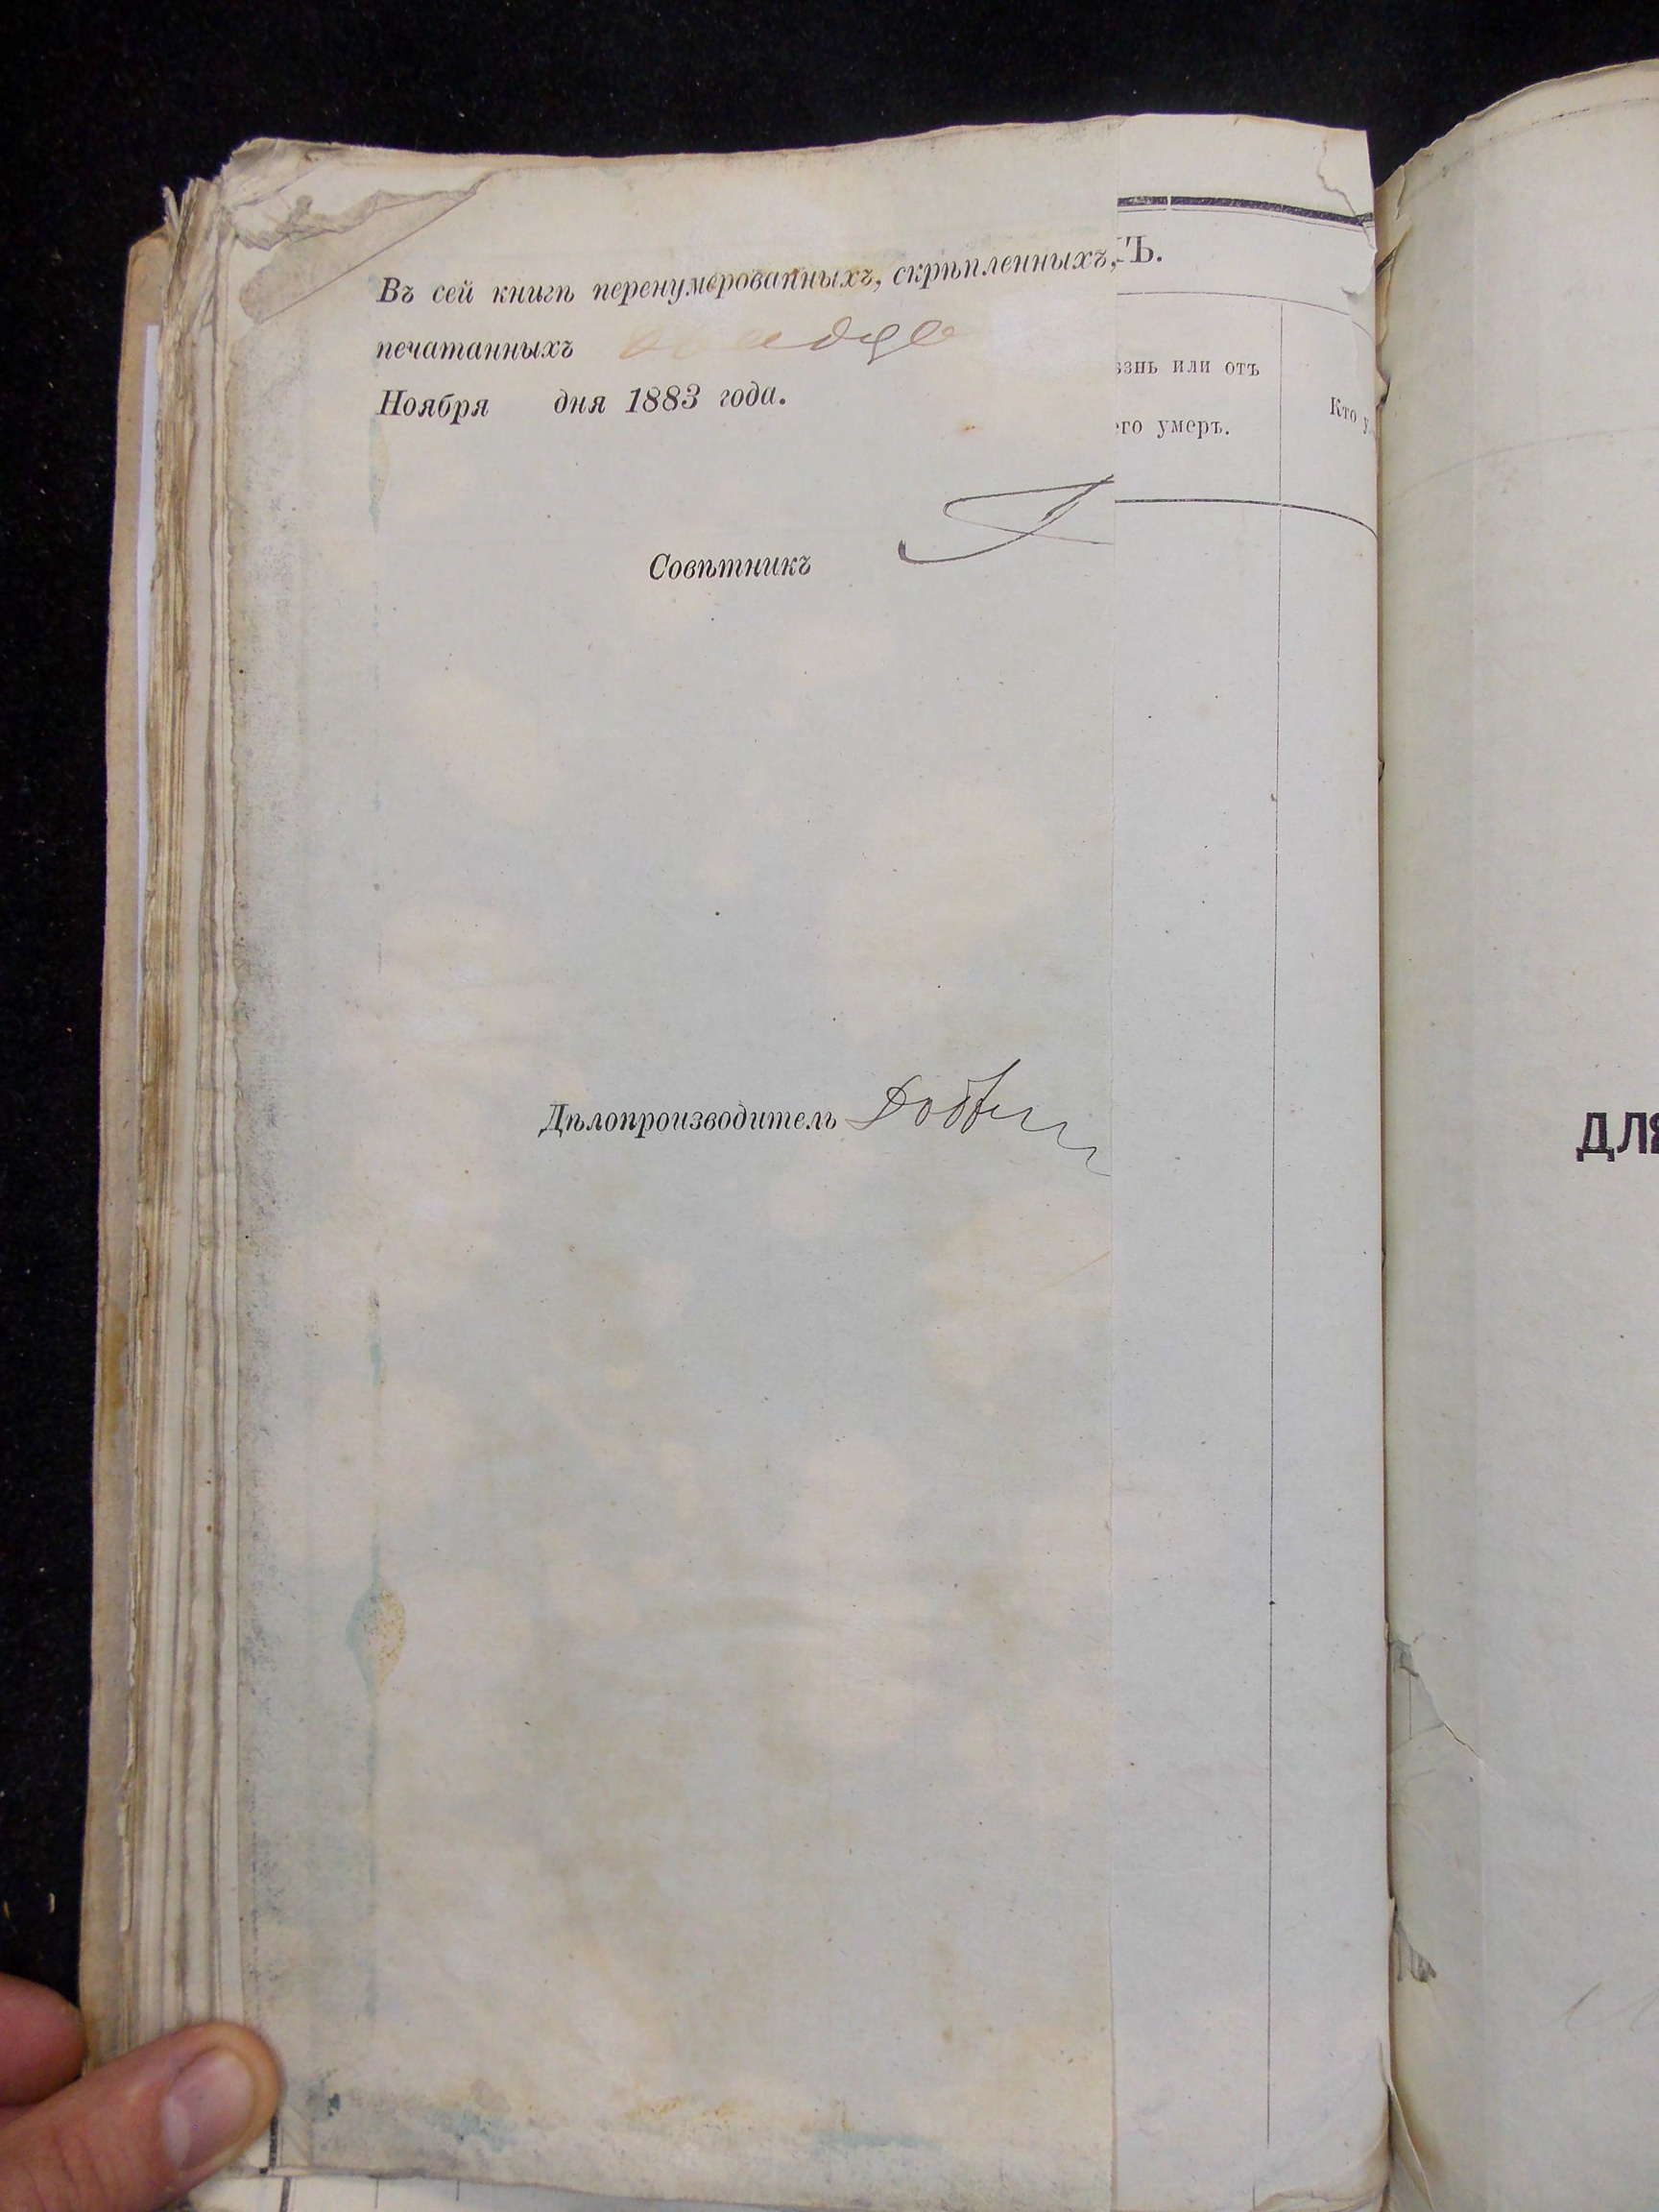 Въ сей книгѣ перенумерованныхъ, скрѣпленныхъ,
печатанныхъ
Ноября дня 1883 года.
Совѣтникъ
Дѣлопроизводитель
Ъ.
знь или отъ
его умеръ.
Кто у
ДЛЯ